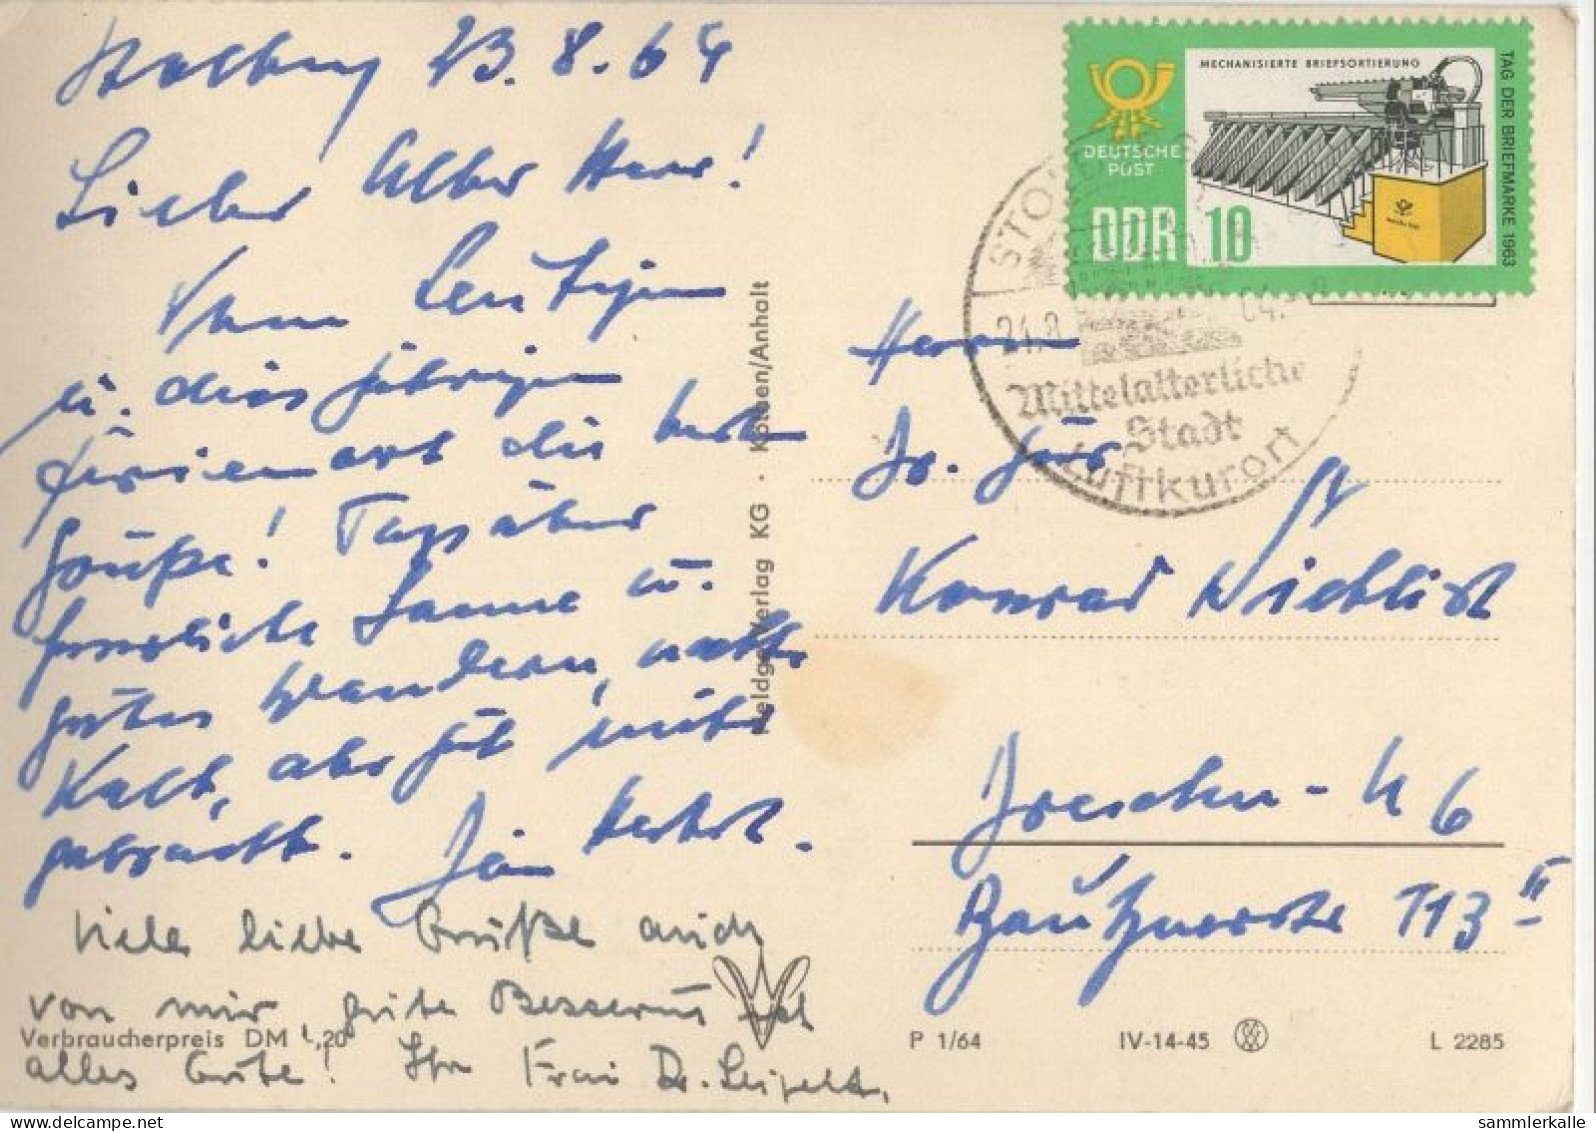 Stolberg 23.8.64
Lieber Alter Herr!
Vom heutigen
u. diesjährigen
Ferienort die besten
Grüße! Tagsüber
herrliche Sonne u.
gutes Wandern, nachts
kalt, aber gut unter-
gebracht. Ihr Herbert.
Viele liebe Grüße auch
von mir, gute Besserung und
alles Gute! Ihre Frau Dr. Leipelt.
Verbraucherpreis DM -,20
Feldgen Verlag KG · Köthen/Anhalt
DEUTSCHE
POST
DDR 10
MECHANISIERTE BRIEFSORTIERUNG
TAG DER BRIEFMARKE 1963
STOLBERG
21.8. 64.
Mittelalterliche
Stadt
Luftkurort
Herrn
Dr. jur.
Konrad Nieblist
Dresden - N 6
Bautznerstr 113 II
P 1/64 IV-14-45 L 2285
sammlerkalle